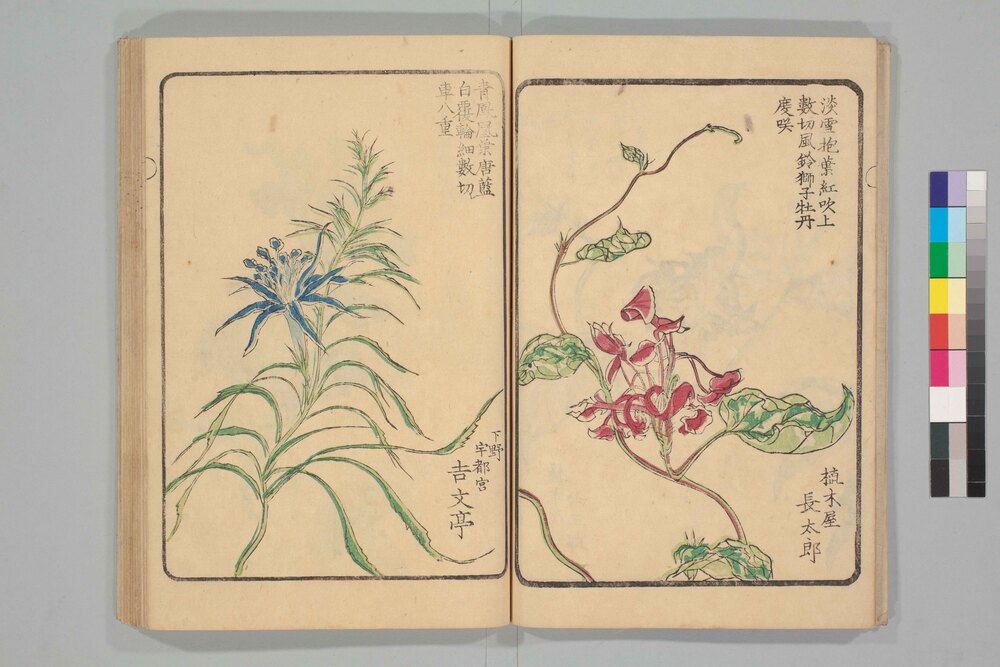 淡雪抱葉紅吹上
數切風鈴獅子牡丹
度咲
植木屋
長太郎
青鳳凰葉唐藍
白覆輪細數切
車八重
下野
宇都宮
吉文亭